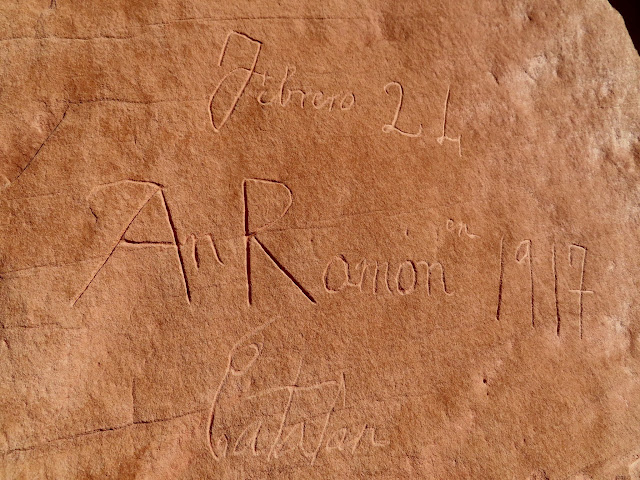 Febrero 24
An Ramón en 1917
Catalan